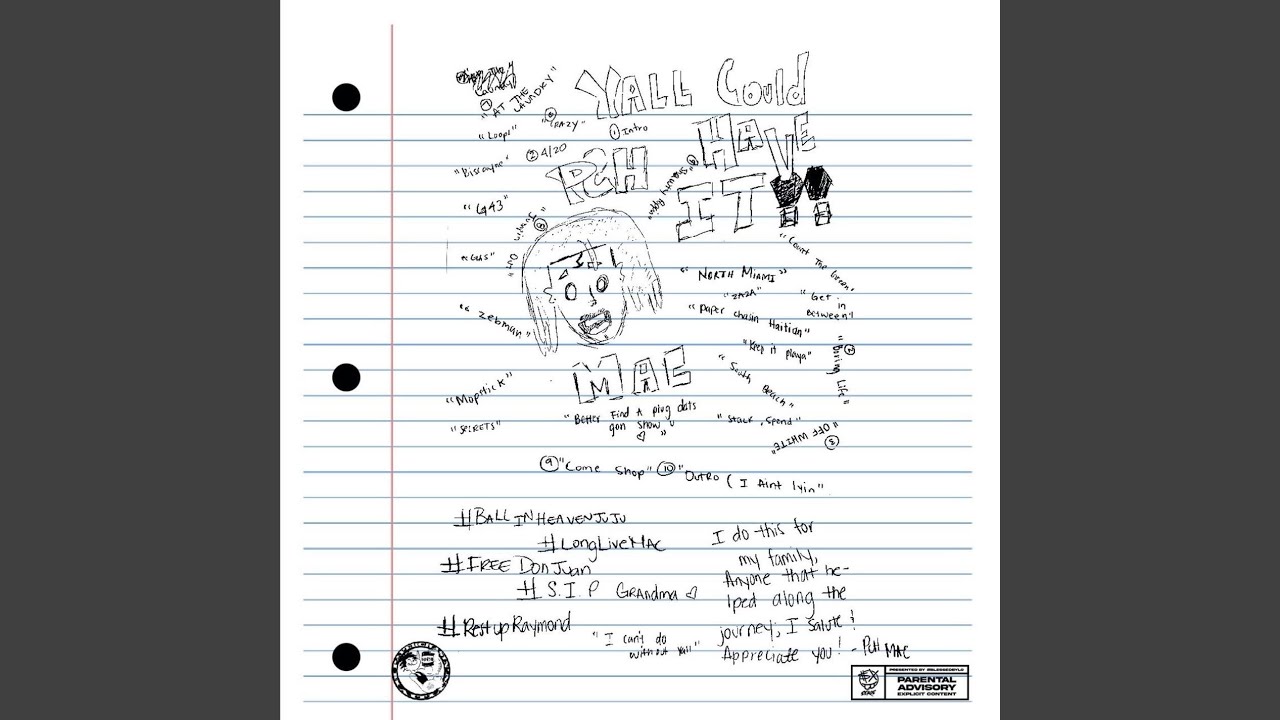 YALL Could
HAVE
IT!!
PGH
MAE
"AT THE LAUNDRY"
"CRAZY"
① Intro
"Loops"
② 4/20
"Biscayne"
"G43"
"Gus"
"Zebman"
"Mopstick"
"SPIRETS"
"NORTH MIAMI"
"ZAZA"
"Paper chasin Haitian"
"Keep it playa"
"South Beach"
"Stack, Spend"
"Count The Green"
"Get in
Between"
"Buring Life"
③ "OFF WHITE"
"Better Find A plug dats
gon show u
♡"
⑨ "Come Shop" ⑩ "Outro ( I Aint lyin"
#BALLINHEAVENJUJU
#LongLiveMAC
#FREE DonJuan
# S.I.P GRAndma ♡
#RestupRaymond
"I can't do
without Yall"
I do this for
my family,
Anyone that he-
lped along the
journey; I Salute!
Appreciate you! - PGH MAC
PRESENTED BY @BLESSEDBYLO
PARENTAL
ADVISORY
EXPLICIT CONTENT